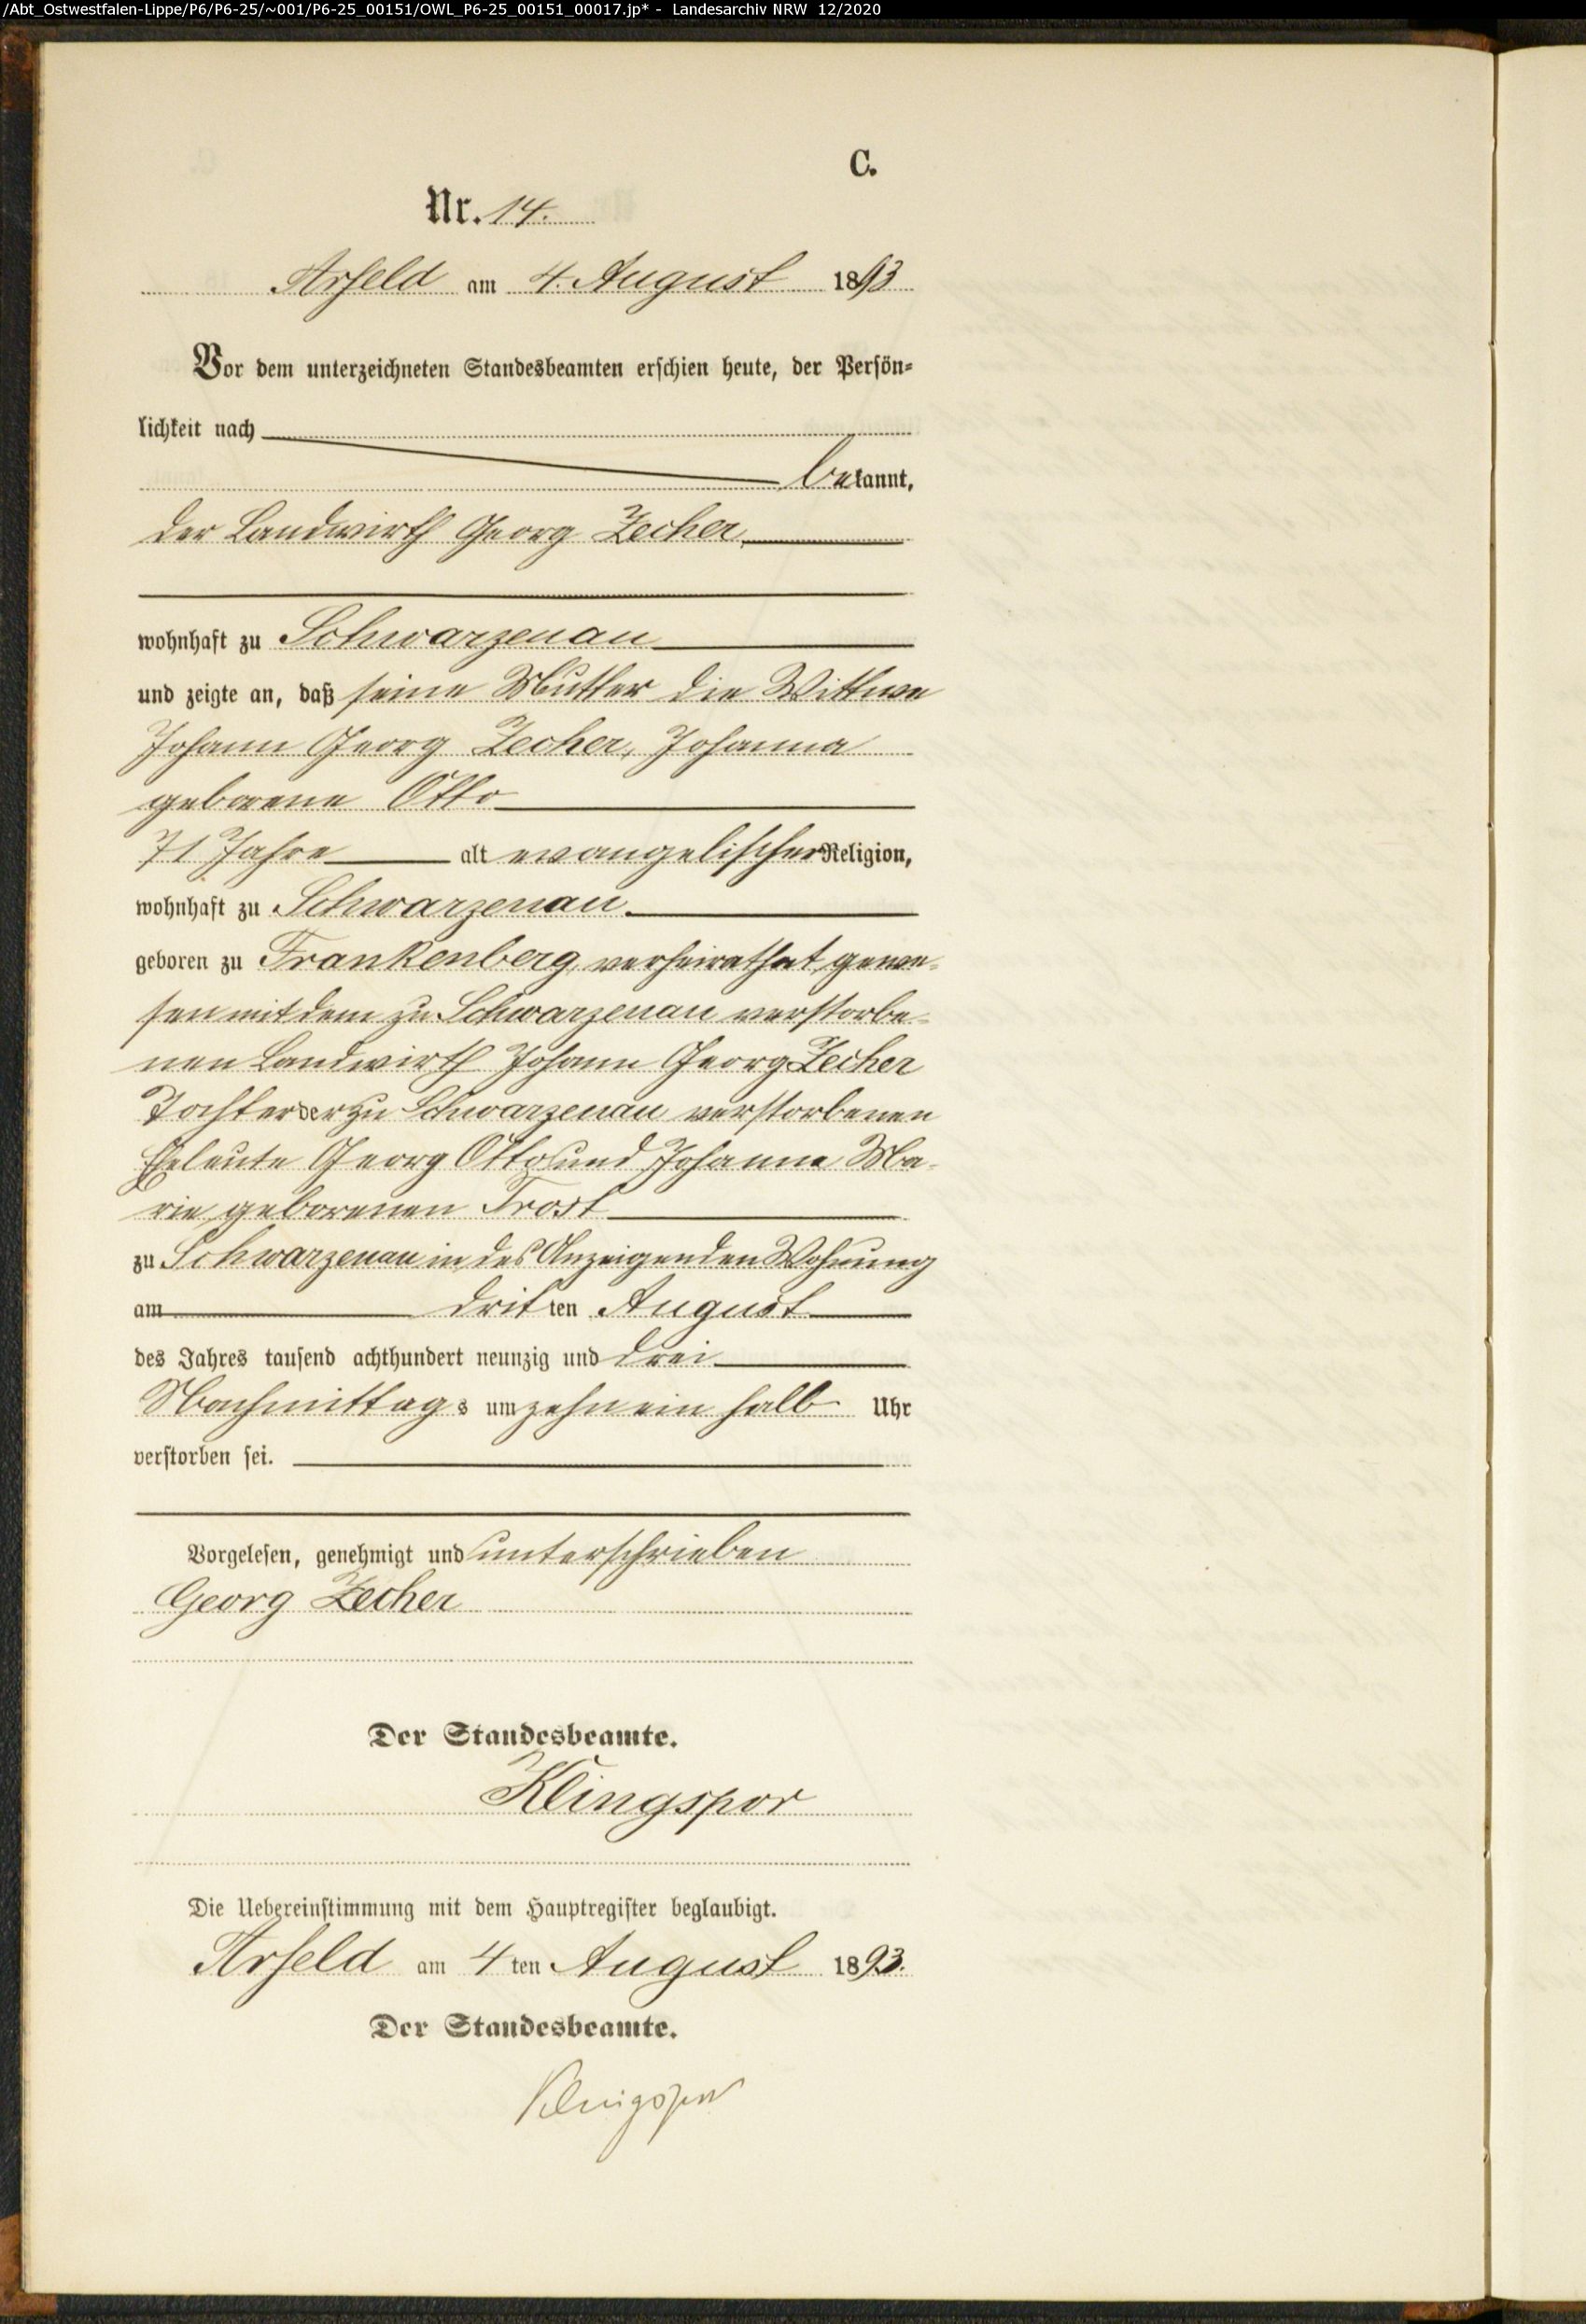 /Abt_Ostwestfalen-Lippe/P6/P6-25/~001/P6-25_00151/OWL_P6-25_00151_00017.jp* - Landesarchiv NRW 12/2020
C.
Nr. 14.
Arfeld am 4. August 1893
Vor dem unterzeichneten Standesbeamten erschien heute, der Persön-
lichkeit nach
bekannt,
der Landwirth Georg Zecher,
wohnhaft zu Schwarzenau
und zeigte an, daß seine Mutter die Wittwe
Johann Georg Zecher, Johanna
geborene Otto
71 Jahre alt evangelischer Religion,
wohnhaft zu Schwarzenau.
geboren zu Frankenberg, verheirathet gewe-
sen mit dem zu Schwarzenau verstorbe-
nen Landwirth Johann Georg Zecher
Tochter der zu Schwarzenau verstorbenen
Eheleute Georg Otto und Johanne Ma-
rie geborenen Trost
zu Schwarzenau in des Anzeigenden Wohnung
am dritten August
des Jahres tausend achthundert neunzig und drei
Nachmittags um zehn ein halb Uhr
verstorben sei.
Vorgelesen, genehmigt und unterschrieben
Georg Zecher
Der Standesbeamte.
Klingspor
Die Uebereinstimmung mit dem Hauptregister beglaubigt.
Arfeld am 4ten August 1893.
Der Standesbeamte.
Klingspor